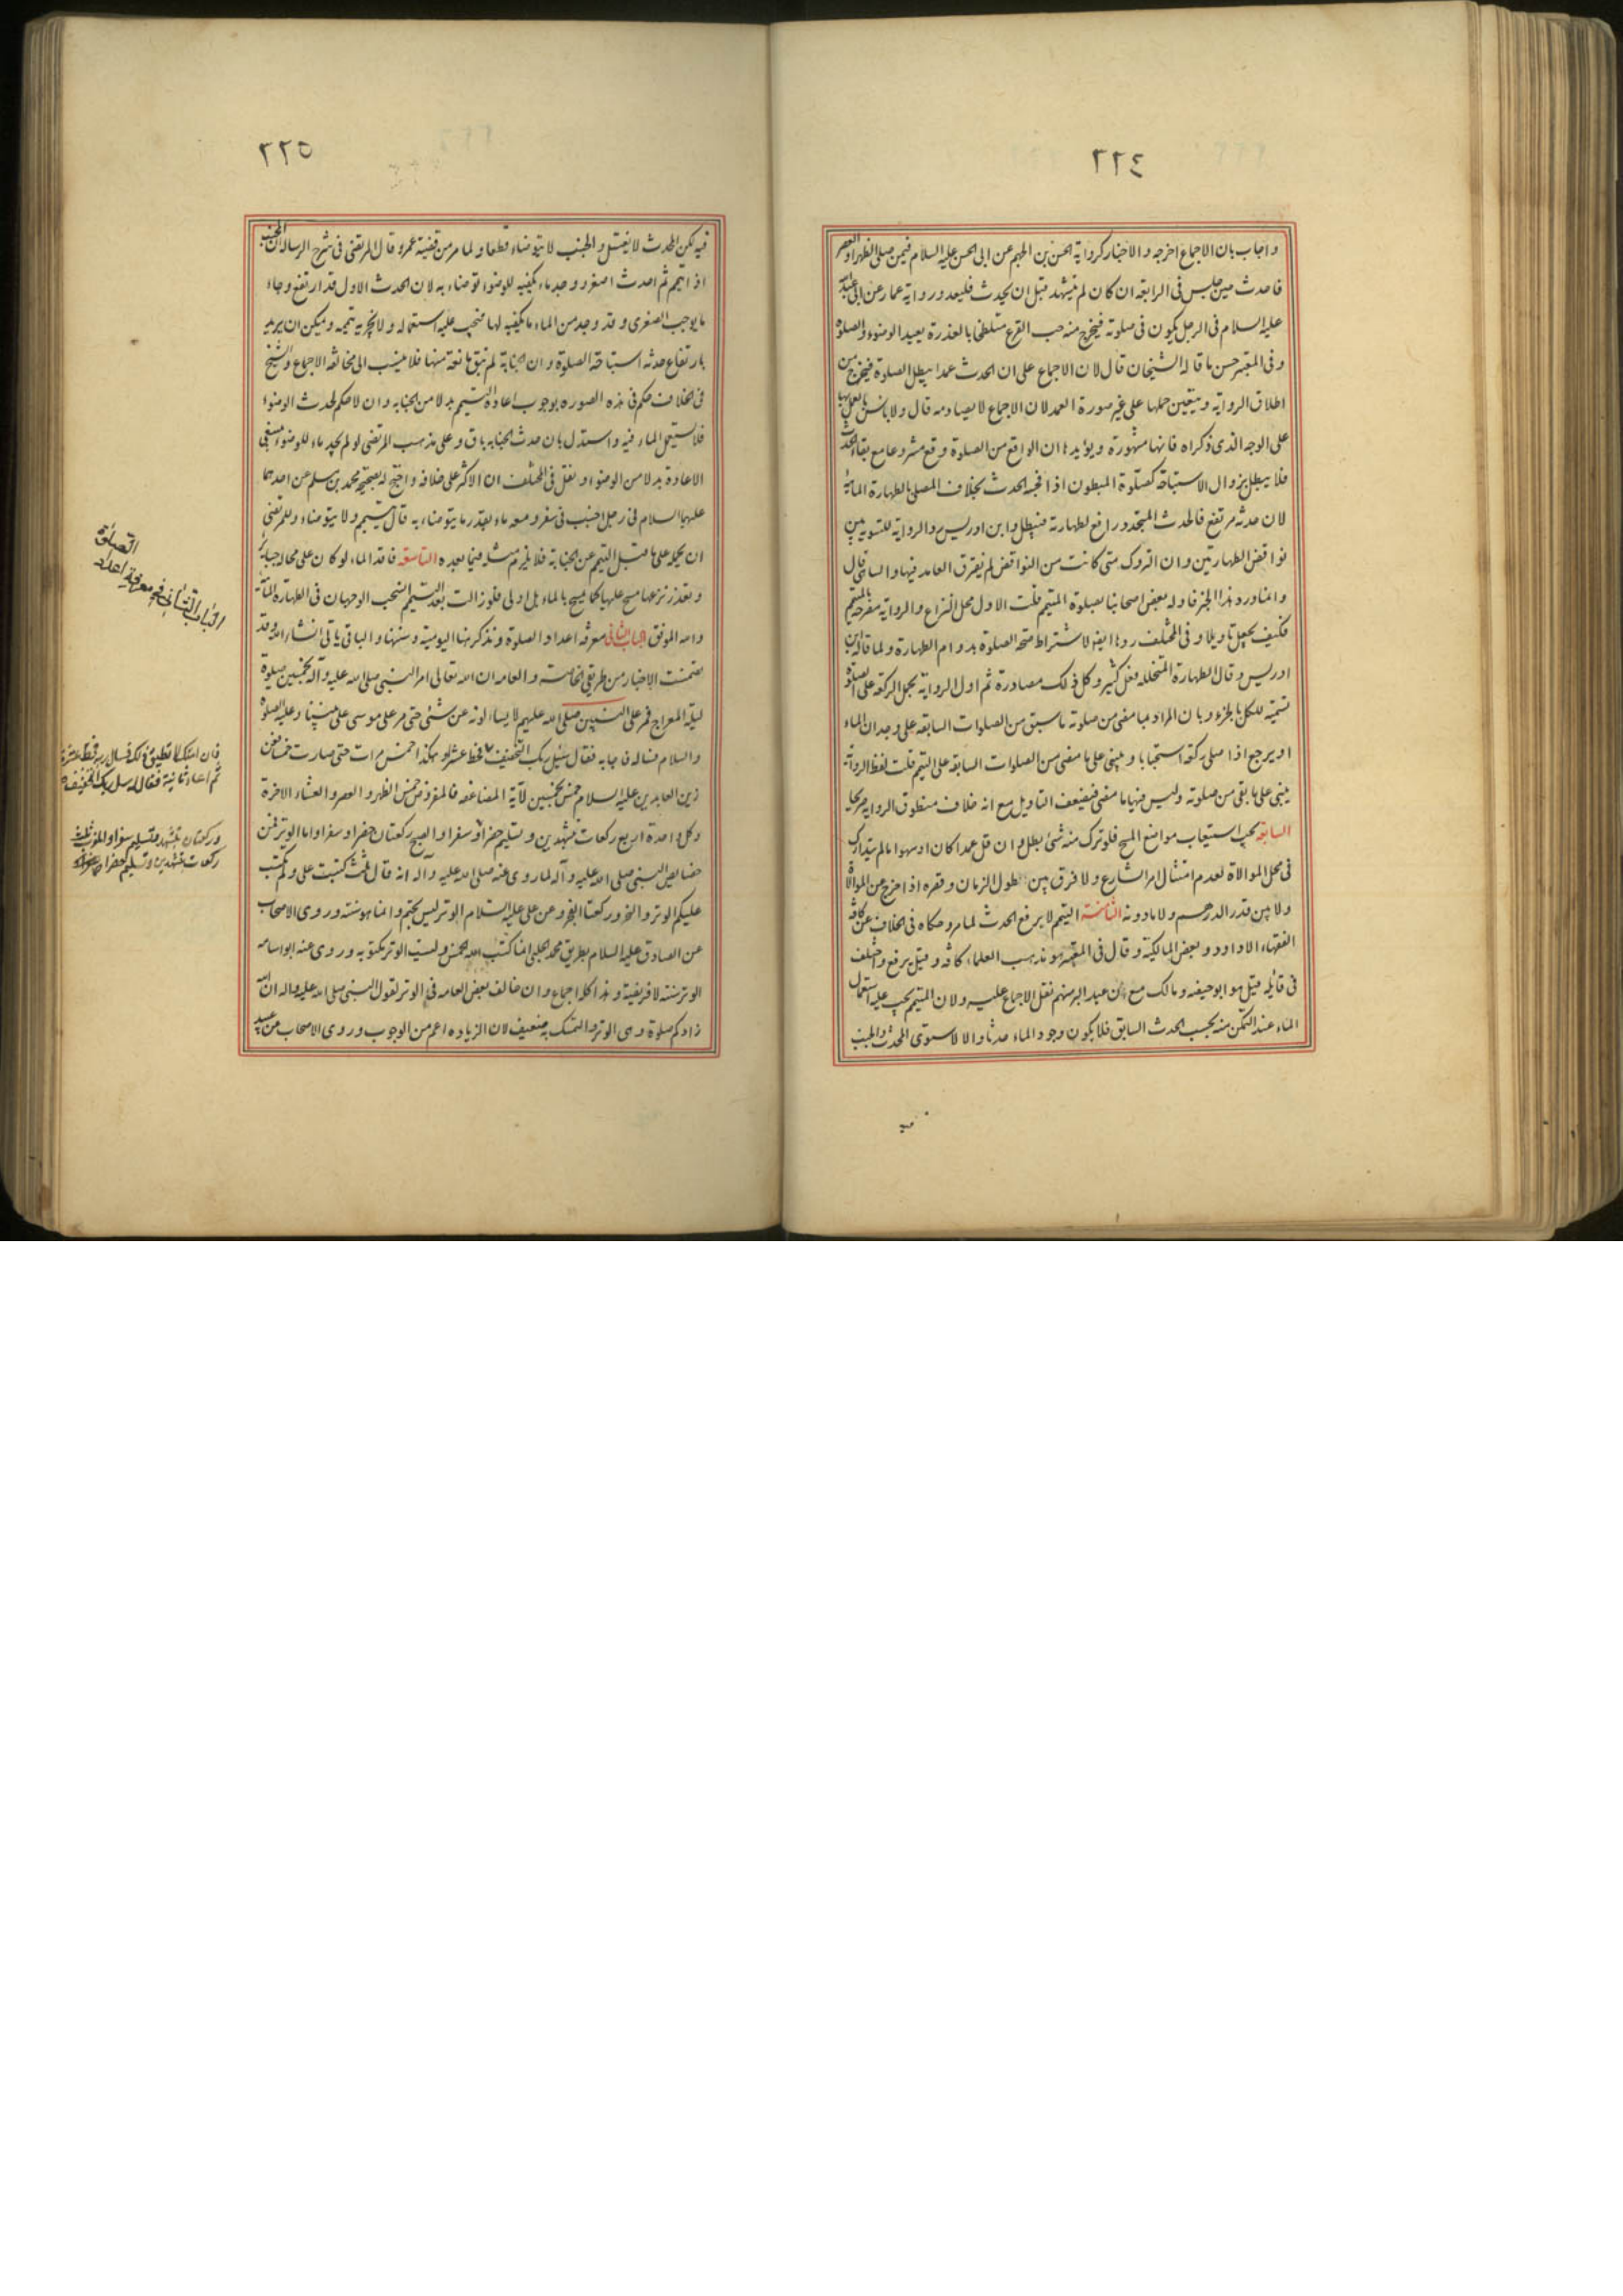 ٢٢٤
واجاب بان الاجماع اخرجه والاخبار كرواية الحسن بن الجهم عن ابى الحسن عليه السلام فيمن صلى الظهر او العصر
فاحدث حين جلس فى الرابعة ان كان لم يتشهد قبل ان يحدث فليعد ورواية عمار عن ابى عبد الله
عليه السلام فى الرجل يكون فى صلوته فيخرج منه حب القرع متلطخا بالعذرة يعيد الوضوء والصلوة
وفى المعتبر حسن ما قاله الشيخان قال لان الاجماع على ان الحدث عمدا يبطل الصلوة فيخرج من
اطلاق الرواية ويتعين حملها على غير صورة العمد لان الاجماع لا يصادمه قال ولا بأس بالعمل بها
على الوجه الذى ذكراه فانها مشهورة ويؤيدها ان الواقع من الصلوة وقع مشروعا مع بقاء الحدث
فلا يبطل بزوال الاستباحة كصلوة المبطون اذا فجئه الحدث بخلاف المصلى بالطهارة المائية
لان حدثه مرتفع فالحدث المتجدد رافع لطهارته فتبطل وابن ادريس رد الرواية للتسوية بين
نواقض الطهارتين وان التروك متى كانت من النواقض لم يفترق العامد فيها والساهى قال
وانما ورد هذا الخبر فاوله بعض اصحابنا بصلوة المتيمم قلت الاول محل النزاع والرواية مصرحة بالمتيمم
فكيف يجعل تاويلا وفى المختلف ردها ايضا لاشتراط صحة الصلوة بدوام الطهارة ولما قاله ابن
ادريس وقال الطهارة المتخللة فعل كثير وكل ذلك مصادرة ثم اول الرواية بحمل الركعة على الصلوة
تسمية للكل بالجزء وبان المراد بما مضى من صلوته ما سبق من الصلوات السابقة على وجدان الماء
او يرجع اذا صلى ركعة استحبابا ويبنى على ما مضى من الصلوات السابقة على التيمم قلت لفظ الرواية
يبنى على ما بقى من صلوته وليس فيها ما مضى فيضعف التاويل مع انه خلاف منطوق الرواية صريحا
السابعة يجب استيعاب مواضع المسح فلو ترك منه شئ بطل وان قل عمدا كان او سهوا ما لم يتدارك
فى محل الموالاة لعدم امتثال امر الشارع ولا فرق بين طول الزمان وقصره اذا خرج عن الموالاة
ولا بين قدر الدرهم ولا ما دونه الثامنة التيمم لا يرفع الحدث لما مر وحكاه فى الخلاف عن كافة
الفقهاء الا داود وبعض المالكية وقال فى المعتبر هو مذهب العلماء كافة وقيل يرفع واختلف
فى قائله فقيل هو ابو حنيفه ومالك مع ان عبد البر منهم نقل الاجماع عليه ولان المتيمم يجب عليه استعمال
الماء عند التمكن منه بحسب الحدث السابق فلا يكون وجود الماء حدثا والا لاستوى المحدث والجنب
فيه
٢٢٥
فيه لكن المحدث لا يغتسل والجنب لا يتوضاء قطعا ولما مر من قضية عمرو قال المرتضى فى شرح الرسالة ان الجنب
اذا تيمم ثم احدث اصغر ووجد ماء يكفيه للوضوء توضاء به لان الحدث الاول قد ارتفع وجاء
ما يوجب الصغرى وقد وجد من الماء ما يكفيه لها فيجب عليه استعماله ولا يجزيه تيممه ويمكن ان يريد
بارتفاع حدثه استباحة الصلوة وان الجنابة لم تبق مانعة منها فلا ينسب الى مخالفة الاجماع والشيخ
فى الخلاف حكم فى هذه الصوره بوجوب اعادة التيمم بدلا من الجنابه وان لا حكم لحدث الوضوء
فلا يستعمل الماء فيه واستدل بان حدث الجنابه باق وعلى مذهب المرتضى لو لم يجد ماء للوضوء ينبغى
الاعادة بدلا من الوضوء ونقل فى المختلف ان الاكثر على خلافه واحتج له بصحيحة محمد بن مسلم عن احدهما
عليهما السلام فى رجل اجنب فى سفر ومعه ماء بقدر ما يتوضاء به قال يتيمم ولا يتوضاء وللمرتضى
ان يحمله على ما قبل التيمم عن الجنابة فلا يلزم مثله فيما بعده التاسعة فاقد الماء لو كان على محاله جبائر
وتعذر نزعها مسح عليها كما يمسح بالماء بل اولى فلو زالت بعد التيمم انسحب الوجهان فى الطهارة المائية
والله الموفق الباب الثانى معرفة اعداد الصلوة ونذكر منها اليومية وسننها والباقى ياتى انشاء الله وقد
تضمنت الاخبار من طريقى الخاصة والعامه ان الله تعالى امر النبى صلى الله عليه وآله بخمسين صلوة
ليلة المعراج فمر على النبيين صلى الله عليهم لا يسالونه عن شئ حتى مر على موسى على نبينا وعليه الصلوة
والسلام فساله فاجابه فقال سل ربك التخفيف فحط عشرا وهكذا خمس مرات حتى صارت خمسا فعن
زين العابدين عليه السلام خمس بخمسين لآية المضاعفه فالمفروض خمس الظهر والعصر والعشاء الاخرة
وكل واحدة اربع ركعات بتشهدين وتسليم حضرا وسفرا والصبح ركعتان حضرا وسفرا واما الوتر فمن
خصايص النبى صلى الله عليه وآله لما روى عنه صلى الله عليه وآله انه قال ثلث كتبت على ولم تكتب
عليكم الوتر والنحر وركعتا الفجر وعن على عليه السلام الوتر ليس بحتم وانما هو سنته وروى الاصحاب
عن الصادق عليه السلام بطريق محمد الحلبى انما كتب الله الخمس وليست الوتر مكتوبه وروى عنه ابو اسامه
الوتر سنته لا فريضية وهذا كله اجماع وان خالف بعض العامه فى الوتر لقول النبى صلى الله عليه واله ان الله
زادكم صلوة وهى الوتر والتمسك به ضعيف لان الزياده اعم من الوجوب وروى الاصحاب عن عبيد
الباب الثانى فى معرفة اعداد
الصلوة
فان امتك لا تطيق ذلك فسال ربه فحط عشرا
ثم اعاد ثانية فقال له سل ربك التخفيف
وركعتان بتشهد وتسليم سفرا والمغرب ثلث
ركعات بتشهدين وتسليم حضرا وسفرا